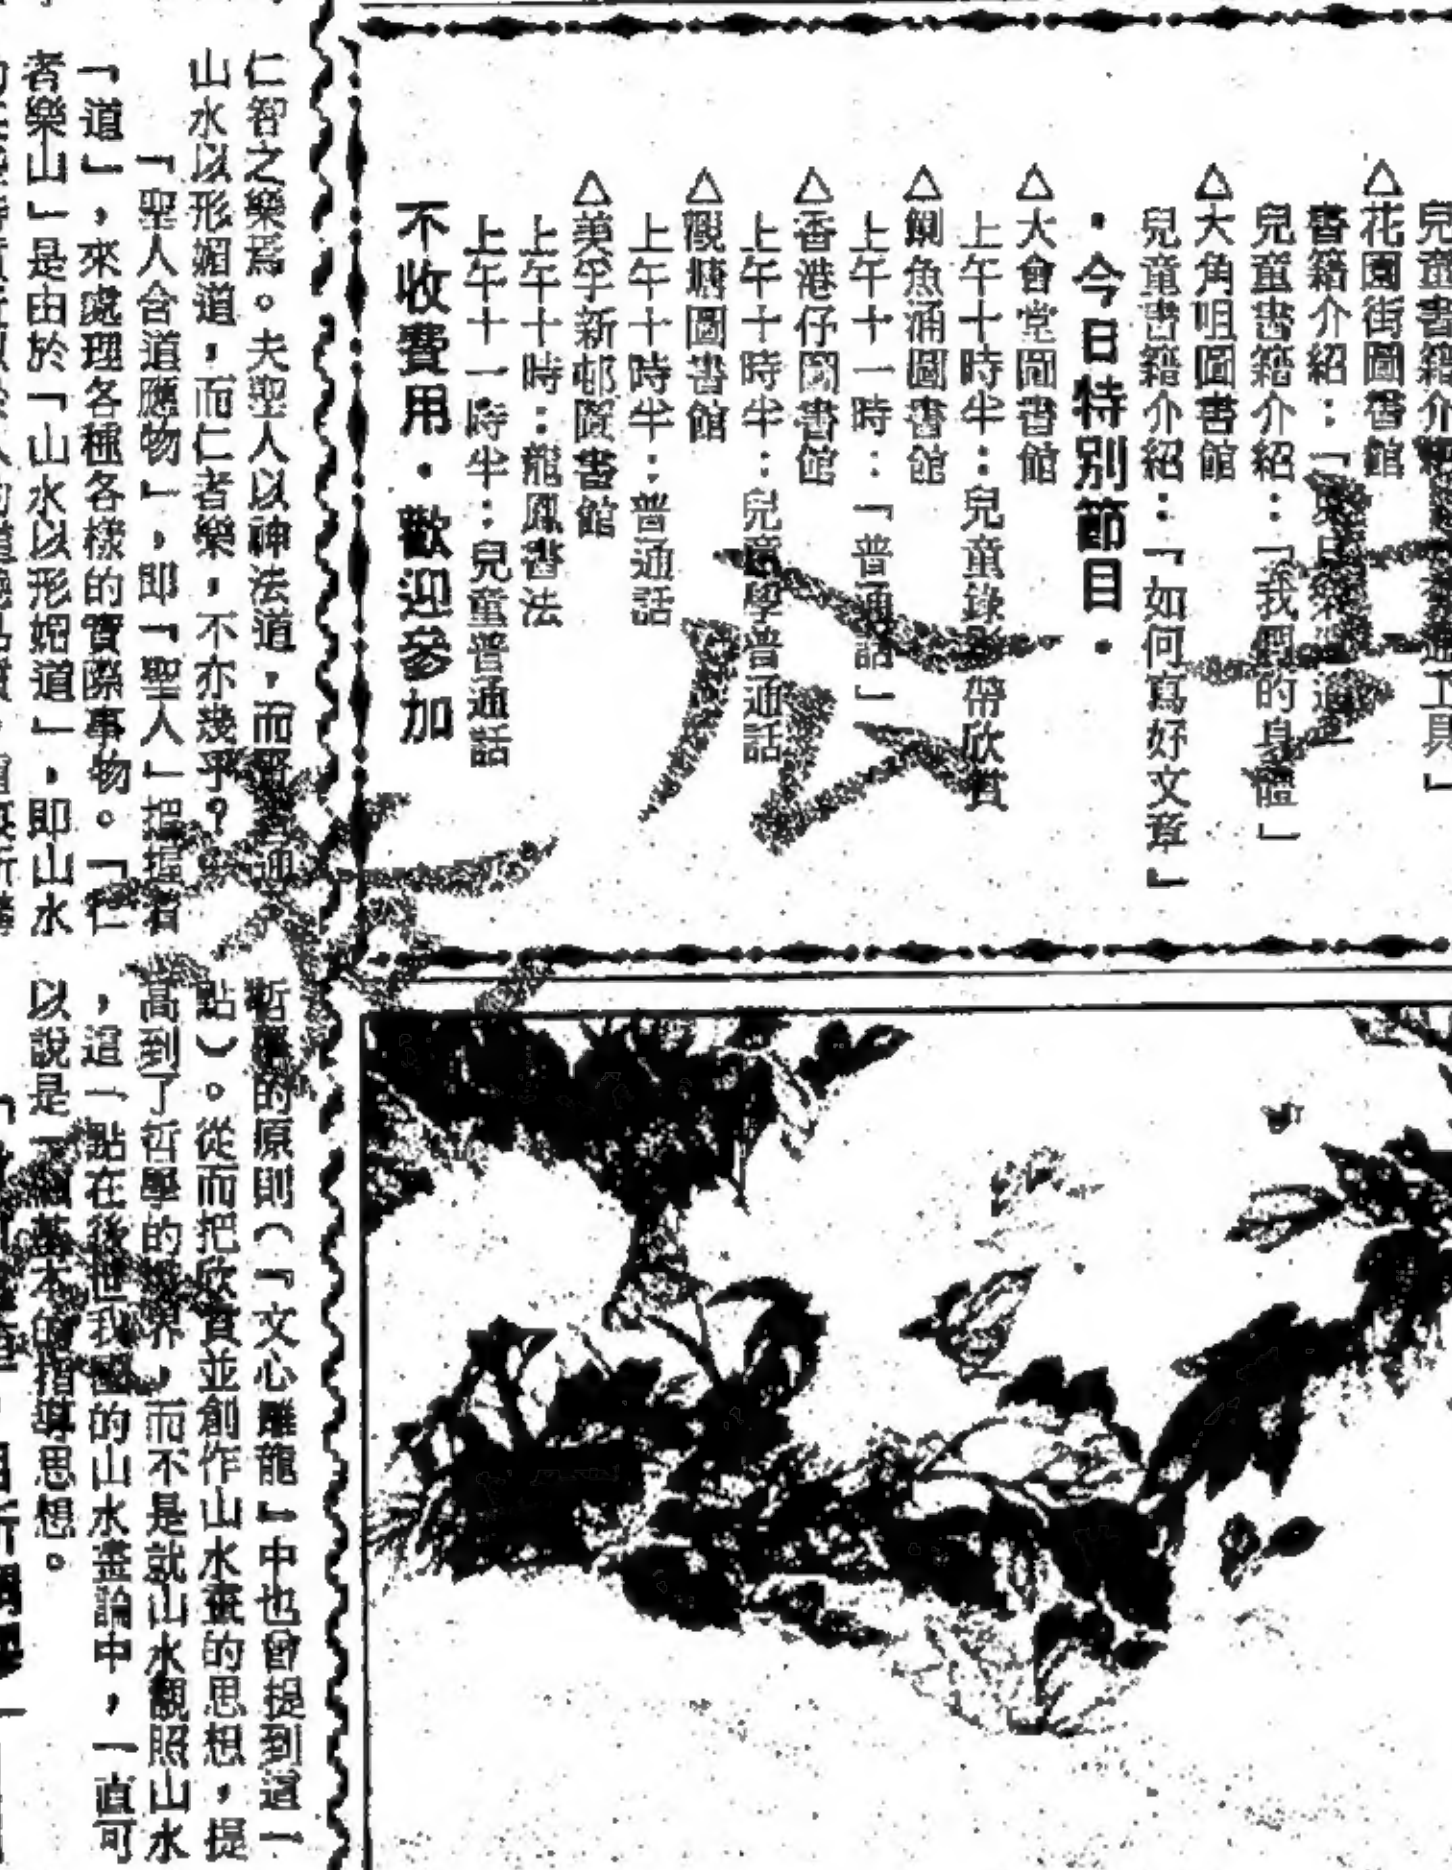 兒童書籍介紹
工具」
△花園街圖書館
書籍介紹：「
兒童書籍介紹：「我們的身體」
△大角咀圖書館
兒童書籍介紹：「如何寫好文章」
・今日特別節目・
△大會堂圖書館
上午十時半：兒童錄影帶欣賞
△鰂魚涌圖書館
上午十一時：「普通話」
△香港仔圖書館
上午十時半：兒童學普通話
△觀塘圖書館
上午十時半：普通話
△美孚新邨圖書館
上午十時：龍鳳書法
上午十一時半：兒童普通話
不收費用・歡迎參加
仁智之樂焉。夫聖人以神法道，而賢者通，
山水以形媚道，而仁者樂，不亦幾乎？
「聖人合道應物」，即「聖人」把握着
「道」，來處理各種各樣的實際事物。「仁
者樂山」是由於「山水以形媚道」，即山水
哲學的原則（『文心雕龍』中也曾提到這一
點）。從而把欣賞並創作山水畫的思想，提
高到了哲學的境界，而不是就山水觀照山水
，這一點在後世我國的山水畫論中，一直可
以說是一個基本的指導思想。